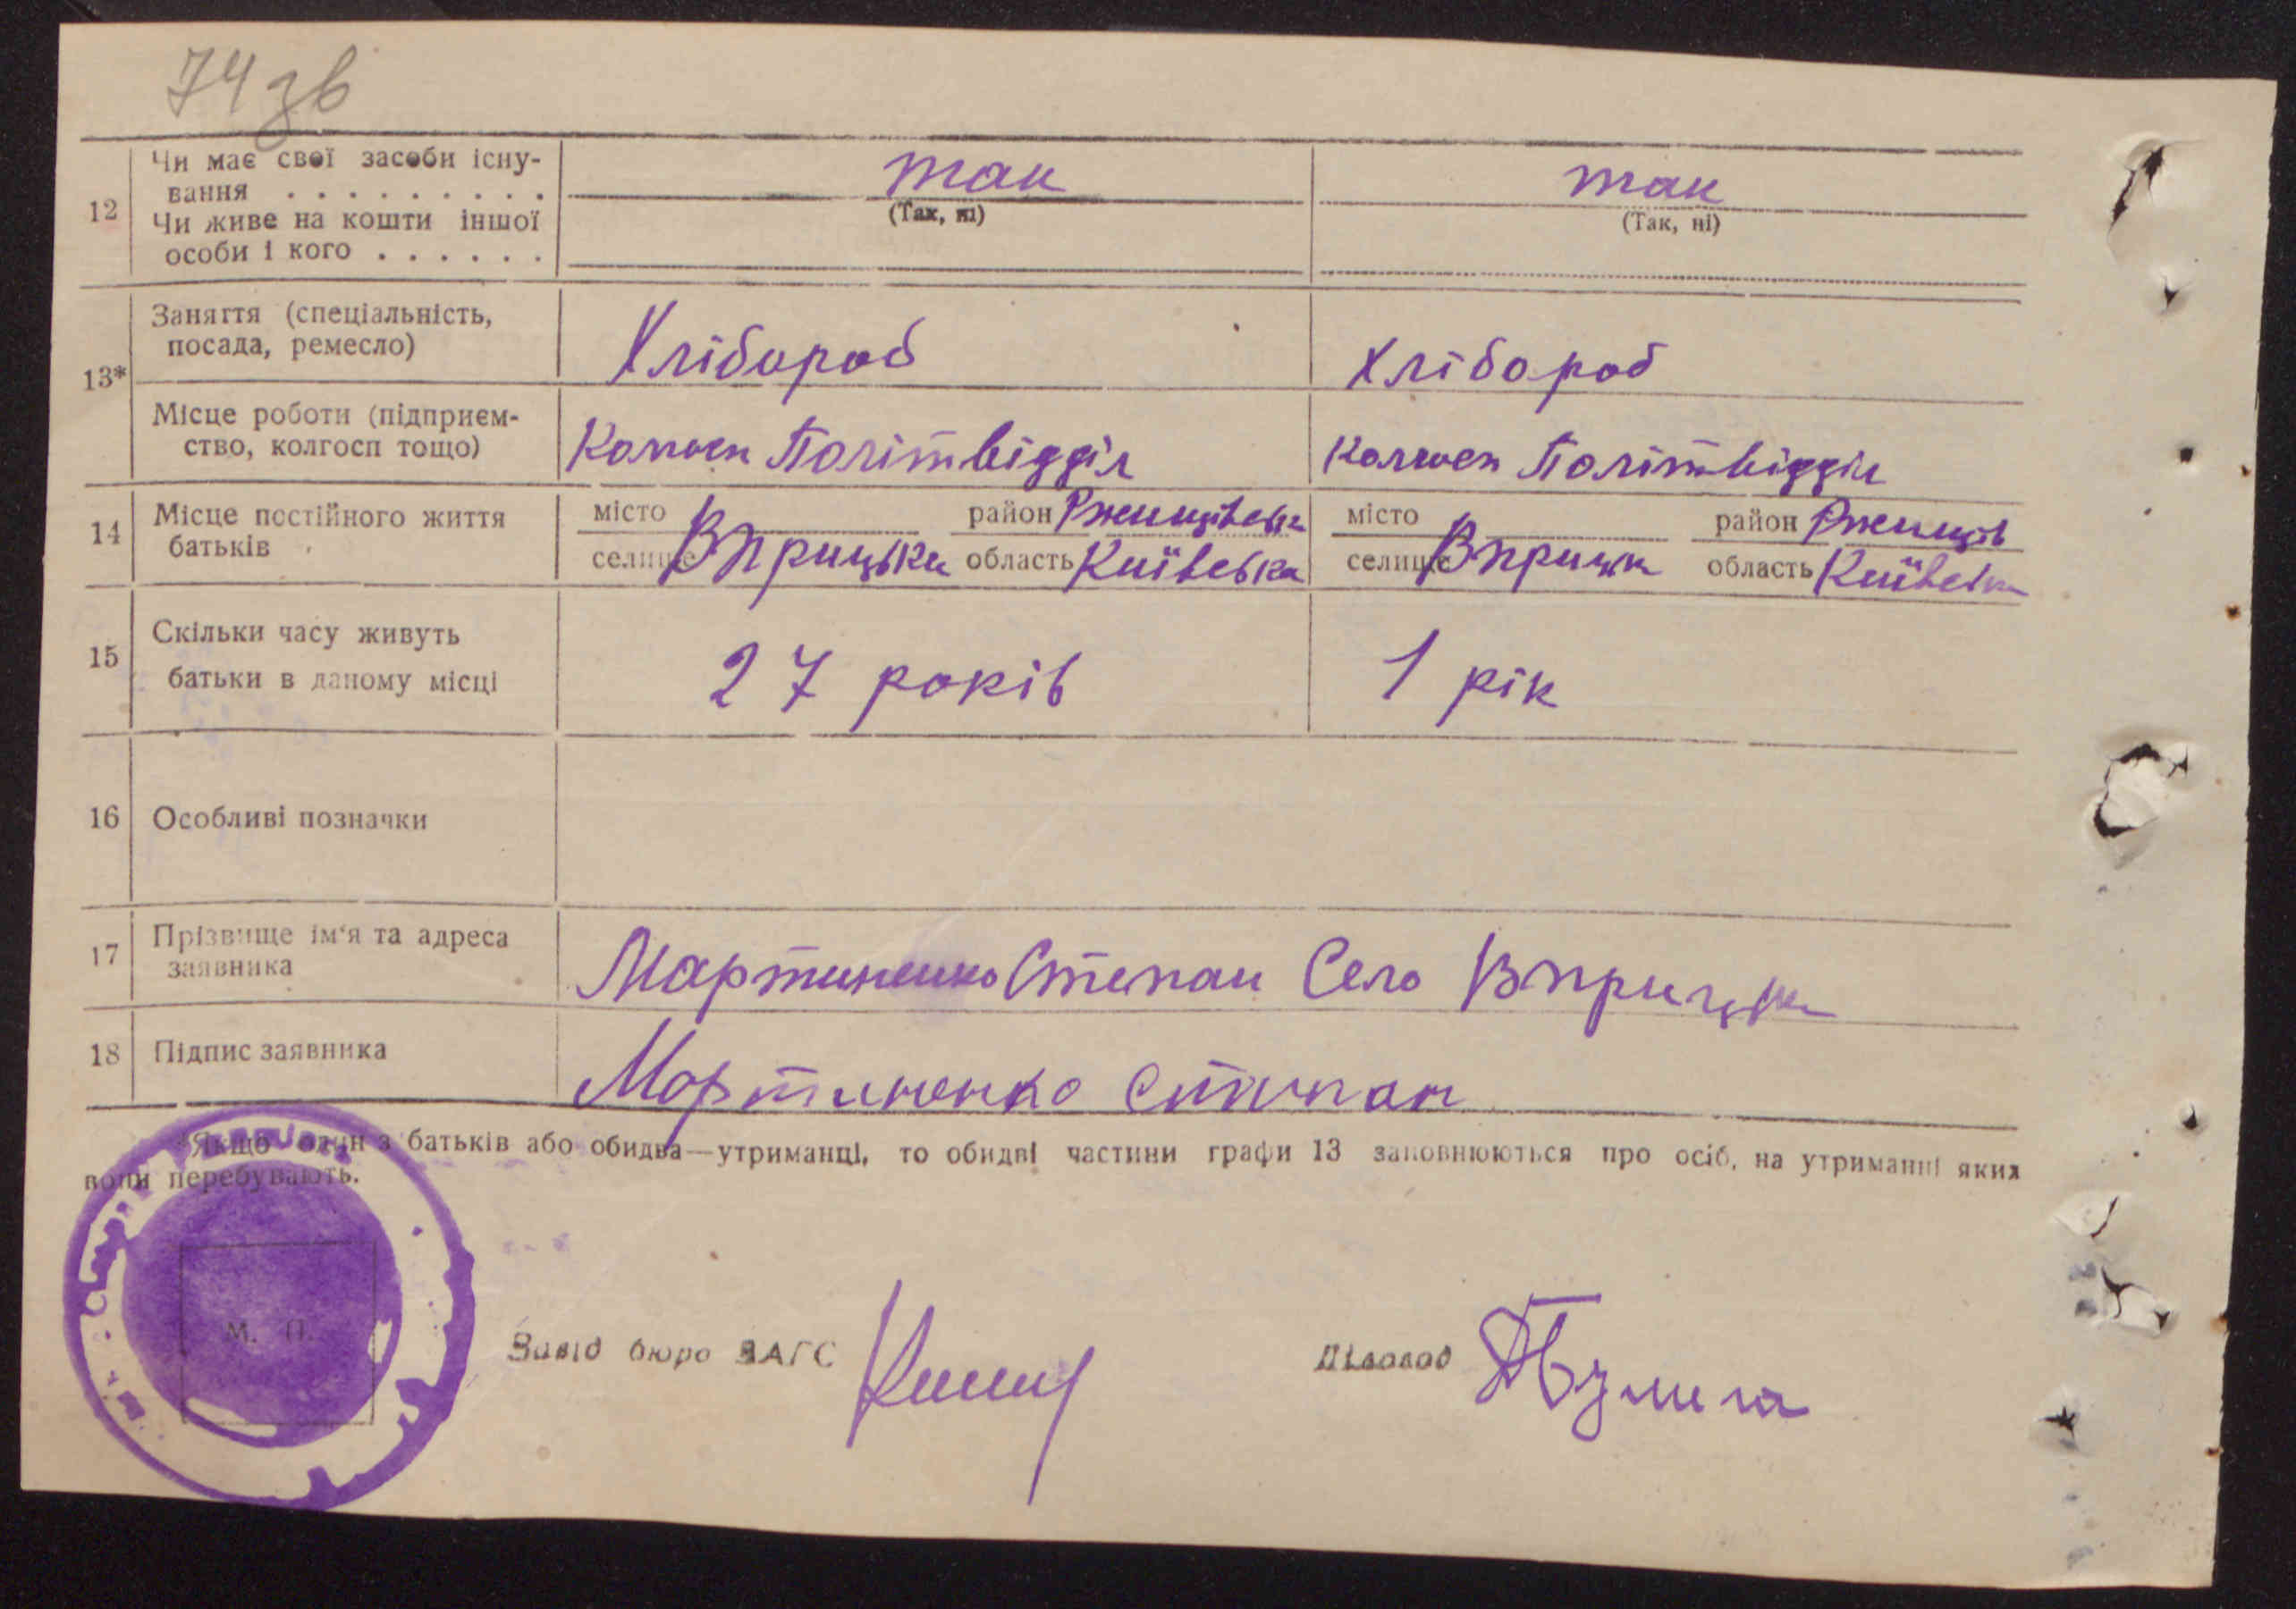 74 зв
12 Чи має свої засоби існу-
вання . . . . . . . . . так так
(Так, ні) (Так, ні)
Чи живе на кошти іншої
особи і кого . . . . . .
13* Заняття (спеціальність,
посада, ремесло) Хлібороб Хлібороб
Місце роботи (підприєм-
ство, колгосп тощо) Колгосп Політвідділ Колгосп Політвідділ
14 Місце постійного життя
батьків
місто район Ржищівськ місто район Ржищів
селище Вприцьки область Київська селище область Київськ
15 Скільки часу живуть
батьки в даному місці 27 років 1 рік
16 Особливі позначки
17 Прізвище ім'я та адреса
заявника Мартиненко Степан Село
18 Підпис заявника Мортиненко
*Якщо один з батьків або обидва—утриманці, то обидві частини графи 13 заповнюються про осіб, на утриманні яких
вони перебувають.
М. П.
Завід бюро ЗАГС Діловод